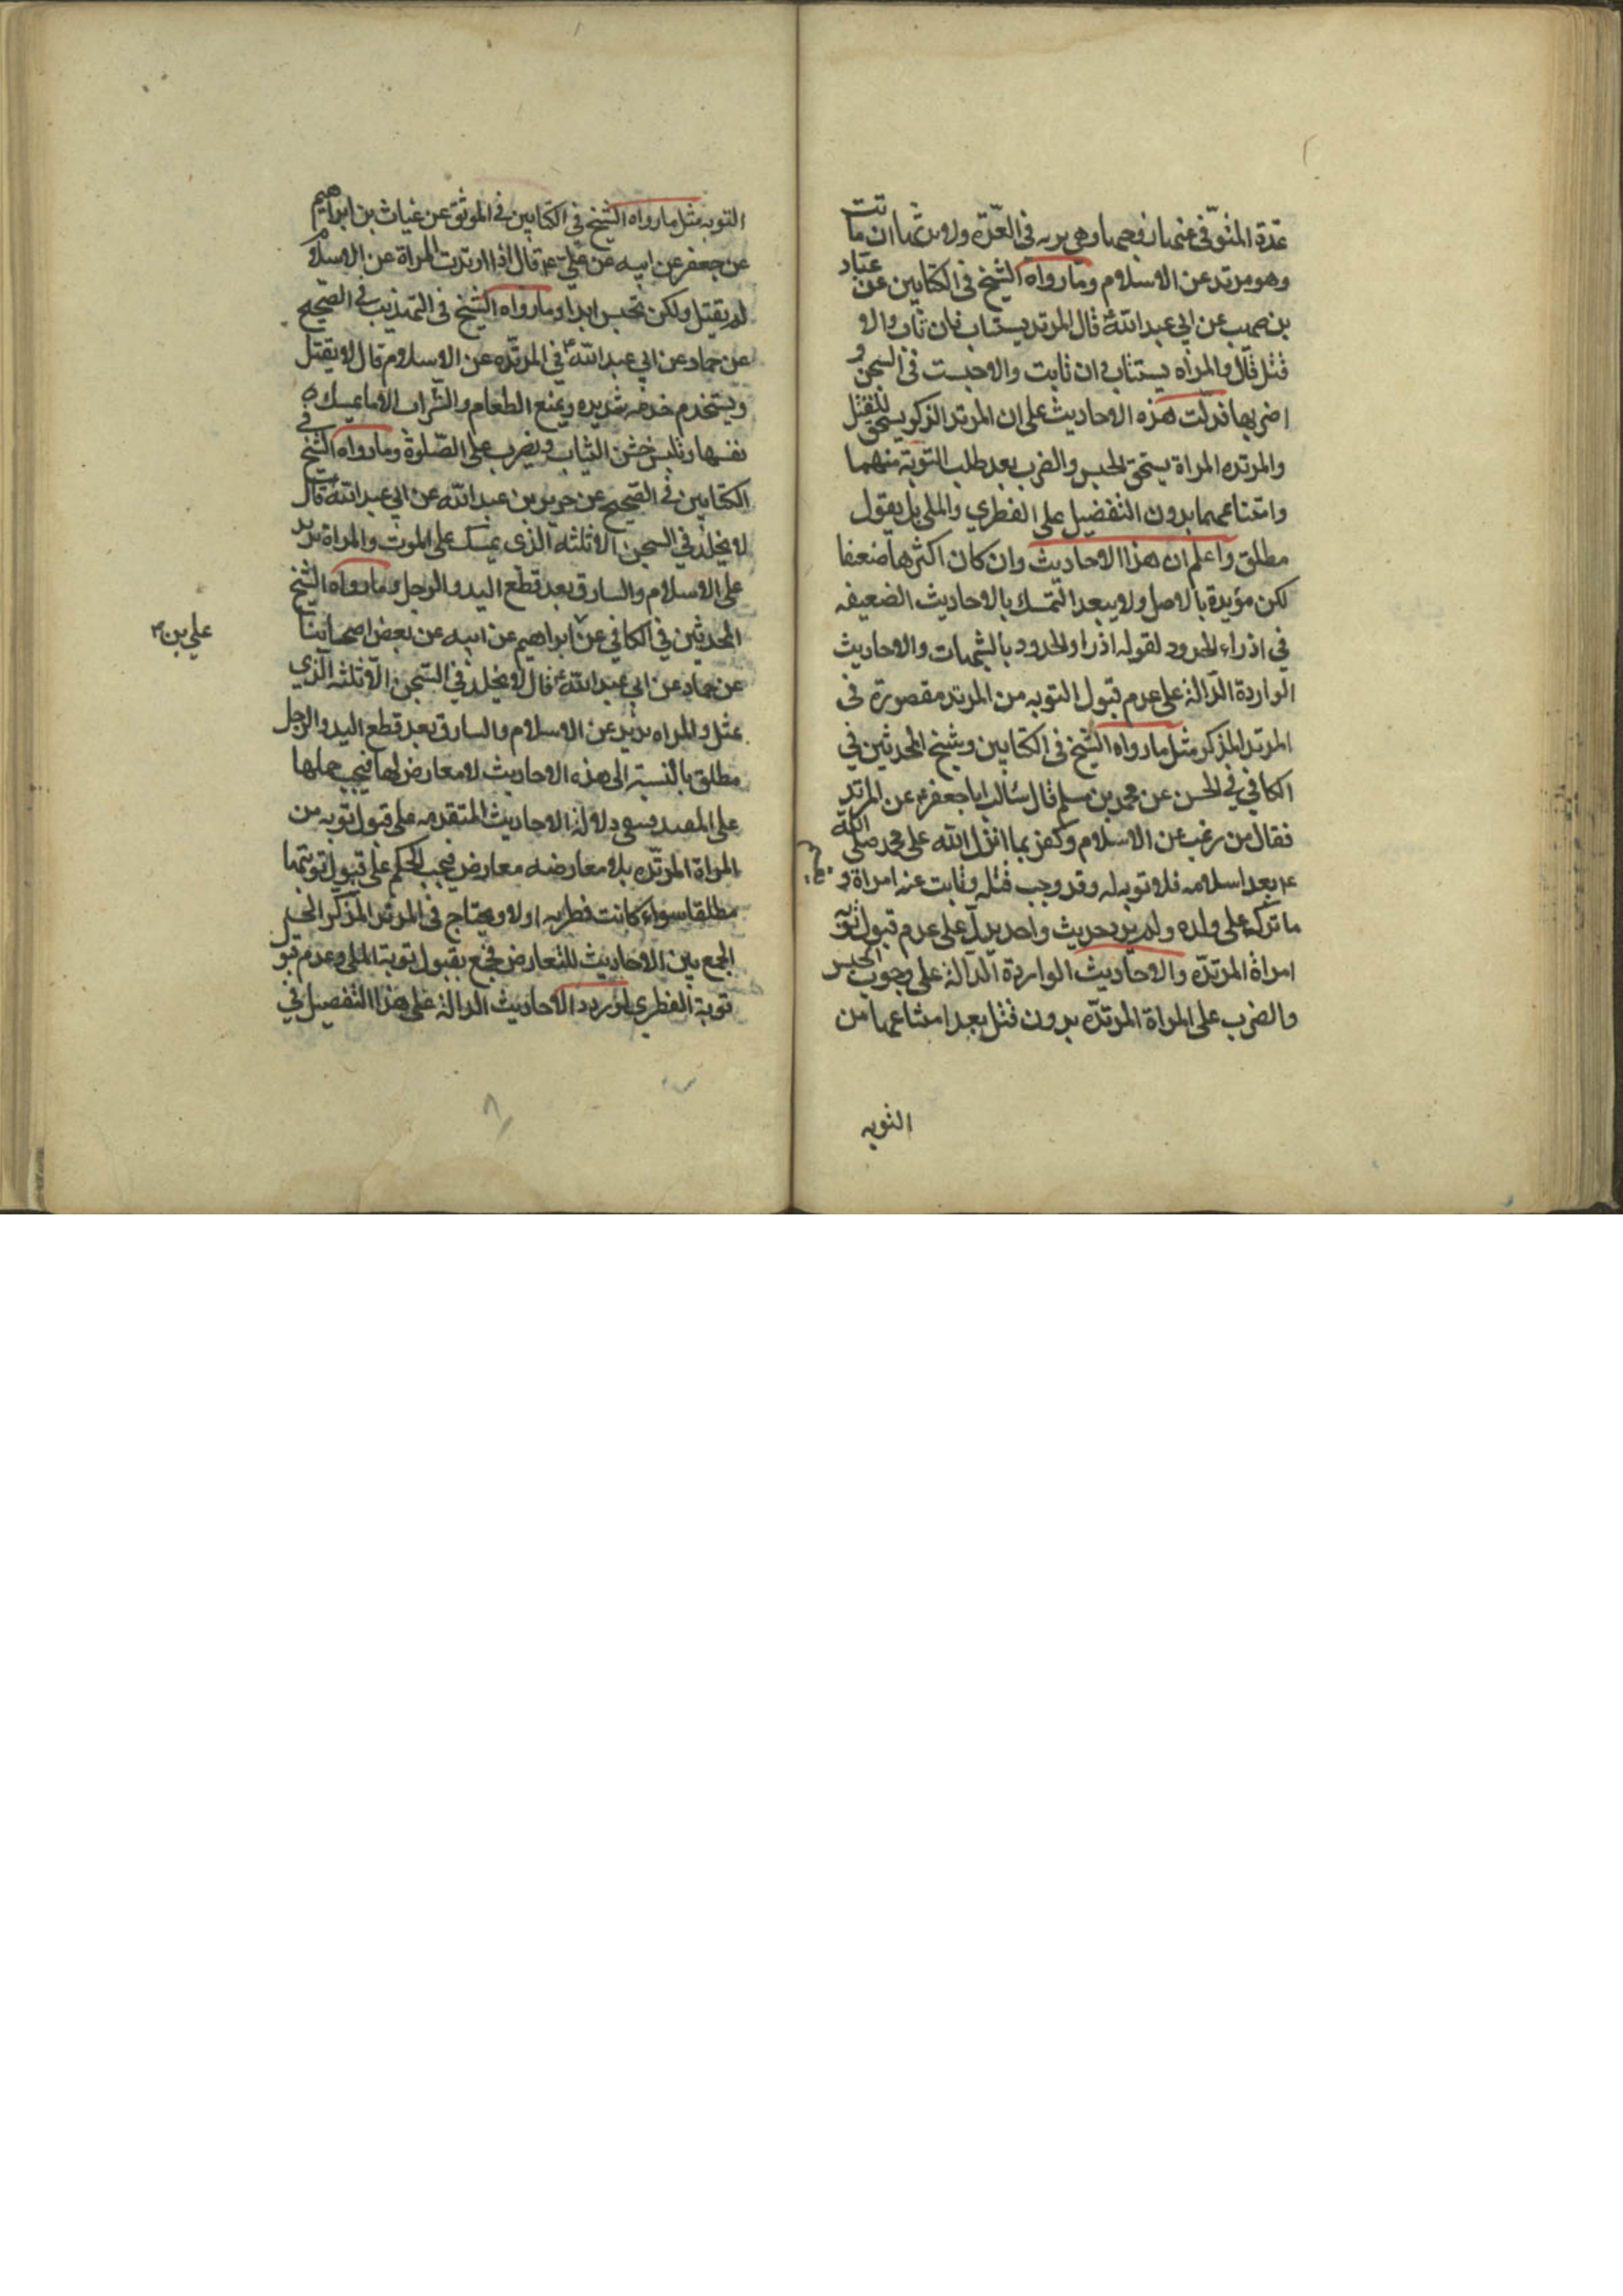 عدة المتوفى عنها زوجها وهي ترثه في العدة ولا يرثها ان ماتت
وهو مرتد عن الاسلام وما رواه الشيخ في الكتابين عن عباد
بن صهيب عن ابي عبد الله ع قال المرتد يستتاب فان تاب والا
قتل قال والمراه يستتاب فان تابت والا حبست في السجن و
اضر بها فدلت هذه الاحاديث على ان المرتد الذكر يستحق للقتل
والمرتده المراة يستحق الحبس والضرب بعد طلب التوبة منهما
وامتناعهما بدون التفضيل على الفطري والملي بل يقول
مطلق واعلم ان هذا الاحاديث وان كان اكثرها ضعفا
لكن مؤيدة بالاصل ولا يبعد التمسك بالاحاديث الضعيفه
في اذراء الحدود لقوله اذراوا الحدود بالشبهات والاحاديث
الواردة الدالة على عدم قبول التوبه من المرتد مقصورة في
المرتد المذكر مثل ما رواه الشيخ في الكتابين وشيخ المحدثين في
الكافي في الحسن عن محمد بن مسلم قال سئالت ابا جعفر ع عن المرتد
فقال من رغب عن الاسلام وكفر بما انزل الله على محمد صلى الله
بعد اسلامه فلا توبه له وقد وجب قتله وبانت عنه امراة و
ما تركه على ولده ولم يرد حديث واحد يدل على عدم قبول توبه
امراة المرتده والاحاديث الواردة الدالة على وجوب الحبس
والضرب على المراة المرتده بدون قتل بعد امتناعها من
التوبه
التوبه مثل ما رواه الشيخ في الكتابين في الموثق عن غياث بن ابراهيم
عن جعفر عن ابيه عن علي ع قال اذا ارتدت المراة عن الاسلام
لم يقتل ولكن تحبس ابدا وما رواه الشيخ في التهذيب في الصحيح
عن حماد عن ابي عبد الله ع في المرتده عن الاسلام قال لا يقتل
ويستخدم خدمه شديده ويمنع الطعام والشراب الا ما يمسك به
نفسها وتلبس خشن الثياب ويضرب على الصلوة وما رواه الشيخ في
الكتابين في الصحيح عن حريز بن عبد الله عن ابي عبد الله ع قال
لا يخلد في السجن الا ثلثه الذي يمسك على الموت والمراة ترتد
على الاسلام والسارق بعد قطع اليد والرجل وما رواه الشيخ
المحدثين في الكافي عن ابراهيم عن ابيه عن بعض اصحابنا
علي بن
عن حماد عن ابي عبد الله ع قال لا يخلد في السجن الا ثلثه الذي
يمثل والمراه ترتد عن الاسلام والسارق بعد قطع اليد والرجل
مطلق بالنسبة الى هذه الاحاديث لا معارض لها فيجب حملها
على المقيد دلالة الاحاديث المتقدمه على قبول توبه من
المراة المرتده بلا معارضه معارض فيجب الحكم على قبول توبتها
مطلقا سواء كانت فطريه اولا ويحتاج في المرتد المذكر الى
الجمع بين الاحاديث للتعارض فجمع بقبول توبة الملي وعدم قبو
توبة الفطري لورود الاحاديث الدالة على هذا التفصيل في